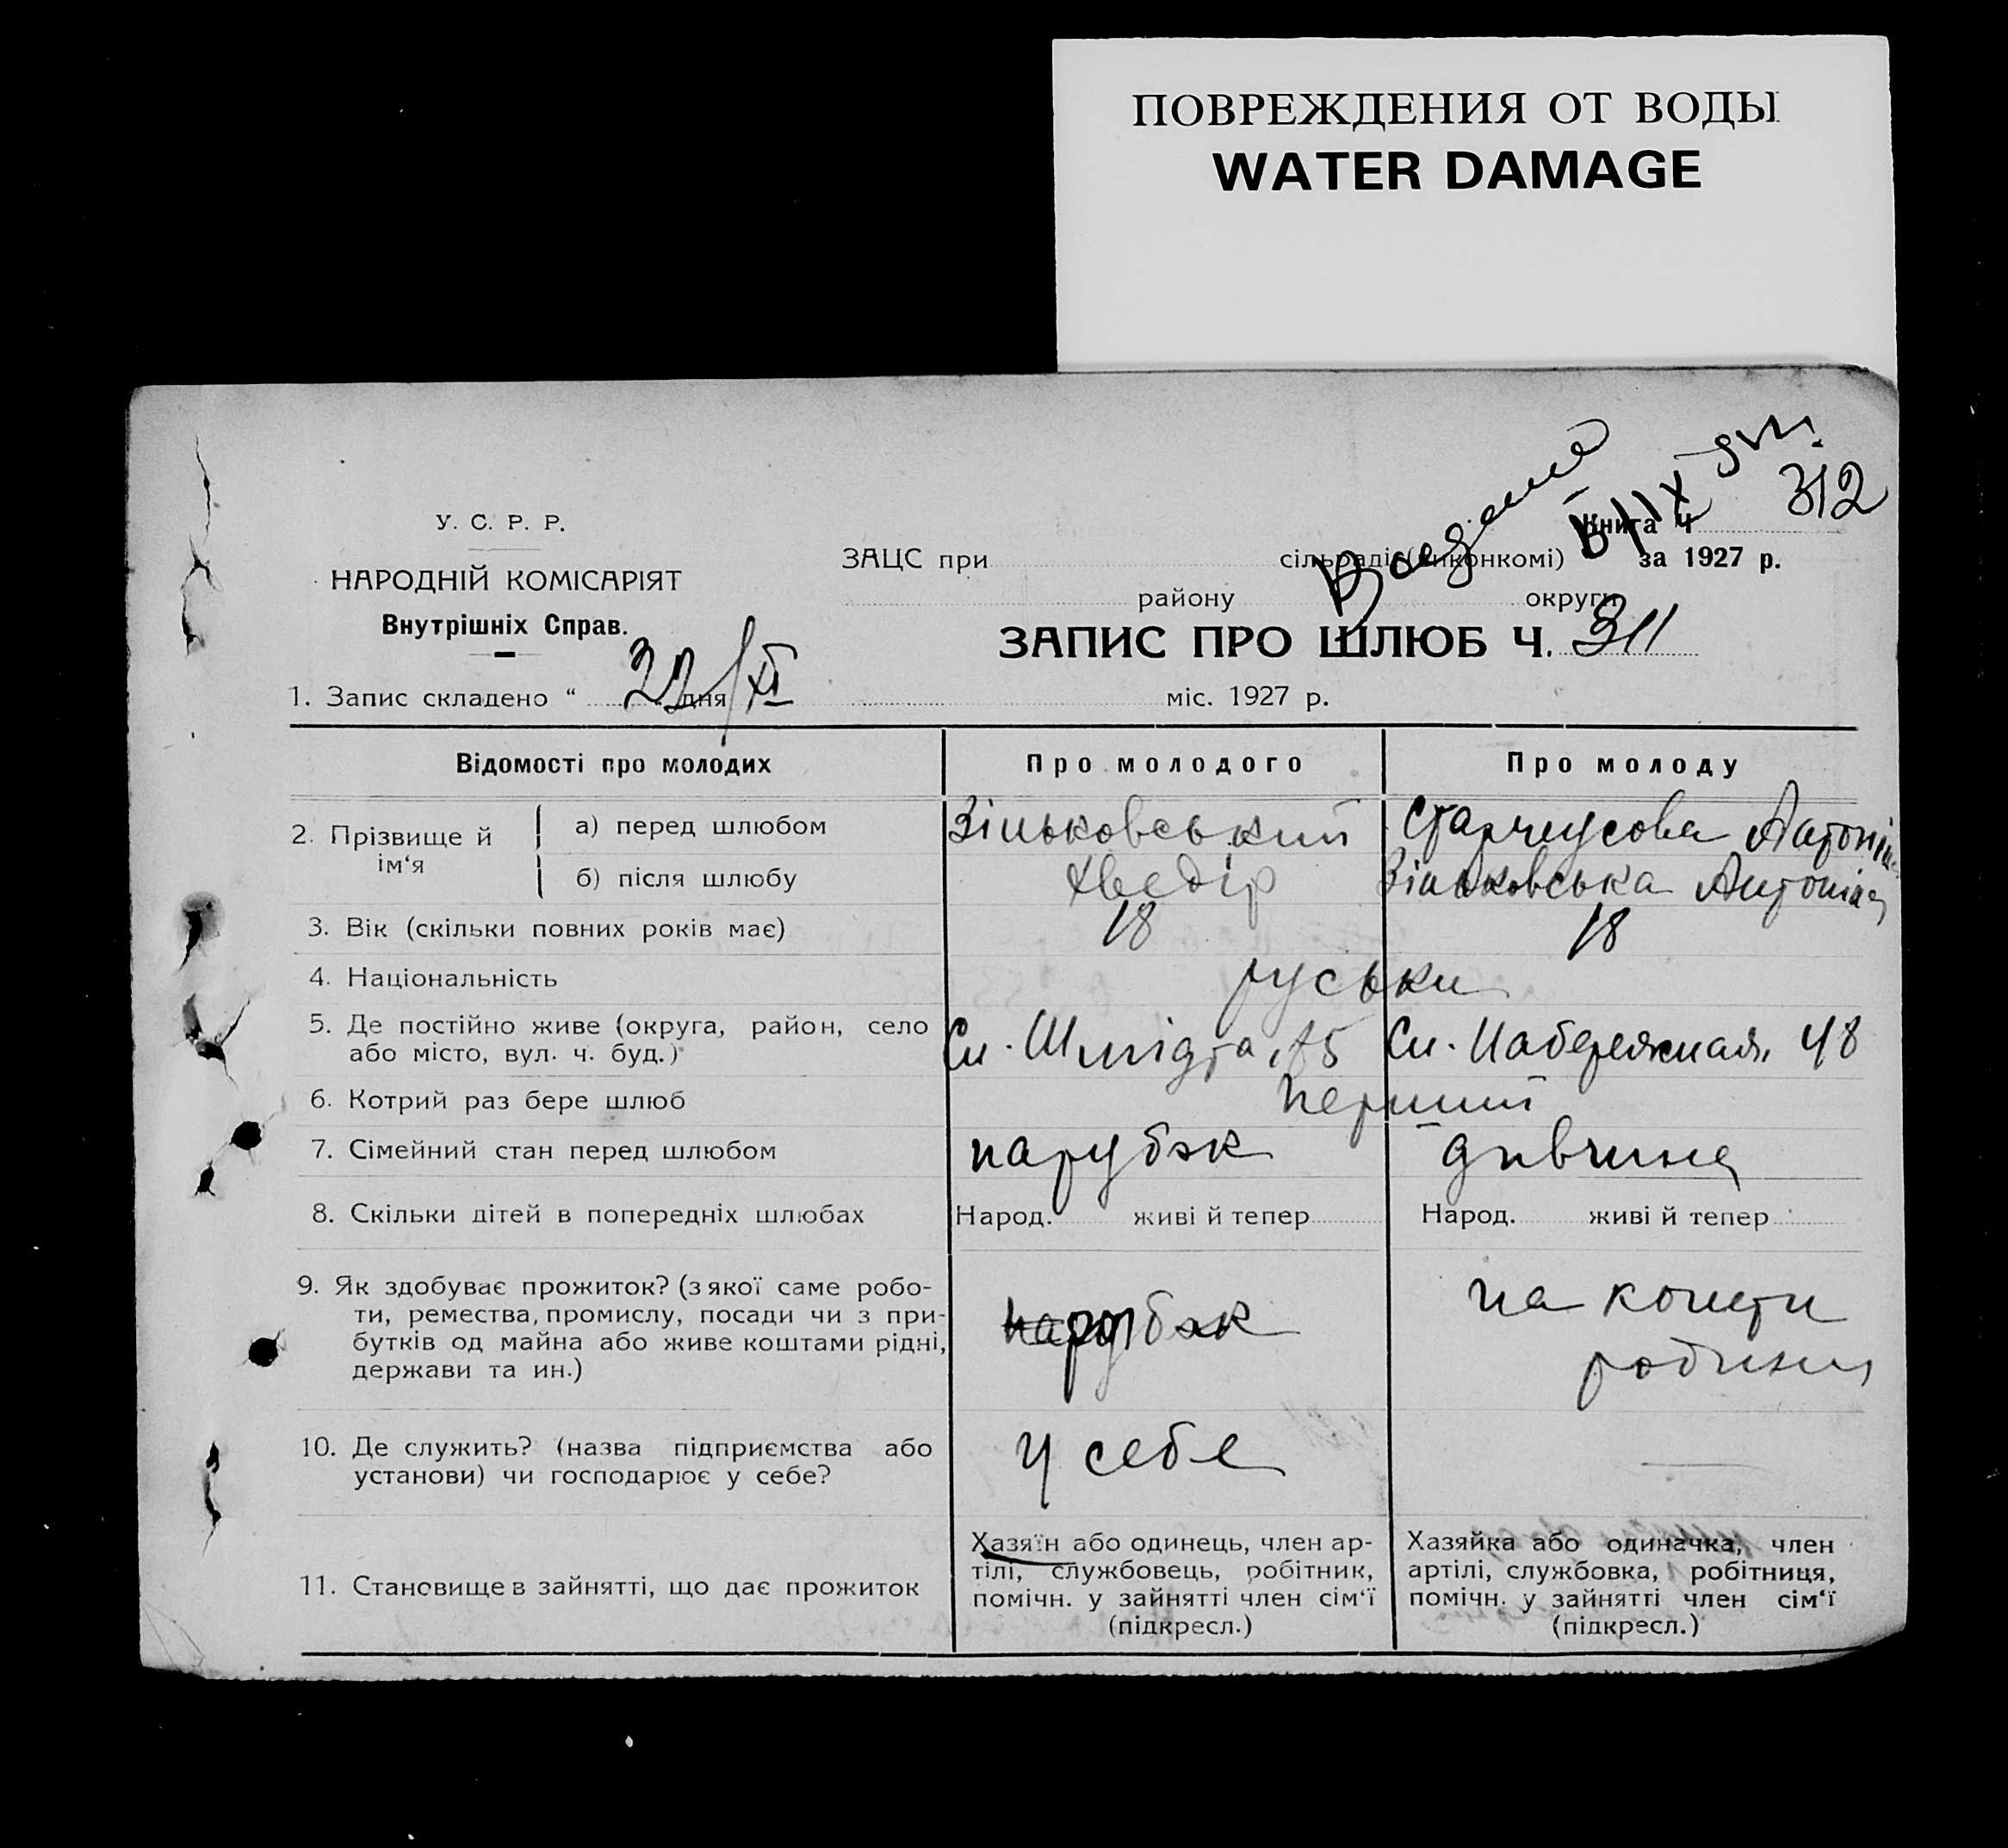 ПОВРЕЖДЕНИЯ ОТ ВОДЫ
WATER DAMAGE
312
У. С. Р. Р.
Книга Ч
НАРОДНІЙ КОМІСАРІЯТ
ЗАЦС при сільраді (виконкомі) за 1927 р.
Внутрішніх Справ.
району округи
ЗАПИС ПРО ШЛЮБ Ч. 311
1. Запис складено “ 22/XI дня міс. 1927 р.
Відомості про молодих Про молодого Про молоду
2. Прізвище й ім‘я
а) перед шлюбом Зіньковський Антоніна
б) після шлюбу Хведір Зіньковська Антоніна
3. Вік (скільки повних років має) 18 18
4. Національність руськи
5. Де постійно живе (округа, район, село
або місто, вул. ч. буд.) См. Шмідта, 15 См. Набережная, 48
6. Котрий раз бере шлюб перший
7. Сімейний стан перед шлюбом парубок дивчина
8. Скільки дітей в попередніх шлюбах Народ. живі й тепер Народ. живі й тепер
9. Як здобуває прожиток? (з якої саме робо-
ти, ремества, промислу, посади чи з при-
бутків од майна або живе коштами рідні,
держави та ин.)
парубок
на кошти
родини
10. Де служить? (назва підприємства або
установи) чи господарює у себе?
у себе
11. Становище в зайнятті, що дає прожиток
Хазяїн або одинець, член ар-
тілі, службовець, робітник,
помічн. у зайнятті член сім‘ї
(підкресл.)
Хазяйка або одиначка, член
артілі, службовка, робітниця,
помічн. у зайнятті член сім‘ї
(підкресл.)